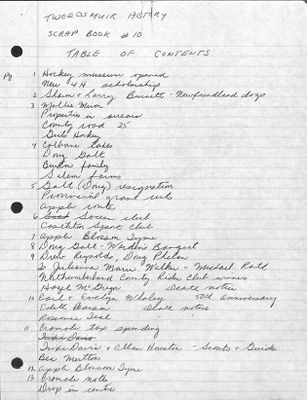 TWEEDSMUIR HISTORY
SCRAP BOOK #10
TABLE OF CONTENTS
Pg. 1 Hockey museum opened
New 4H scholarship
2 Shawn & Larry Burnett - Newfoundland dogs
3 Mollie
Properties in arrears
County road 25
Girls Hockey
4 Colborne
Doug Galt
family
Salem farms
5 Galt (Doug) resignation
Provincial grant cuts
Apple route
6 Soccer club
Castleton Sport club
7 Apple Blossom Tyme
8 Doug Galt - Wardens Banquet
9 Drew Reynolds, Doug Phelan
Julianna Marie Walker - Michael
Northumberland County winners
Hazel Death notice
10 Earl & Evelyn Whaley 50th Anniversary
Edith Death notice
Rosanna
11 Cramahe tax spending
Trixie Davis & Allan - Scouts & Guide
Bea Mutton
12 Apple Blossom Tyme
13 Cramahe notes
Drop in centre